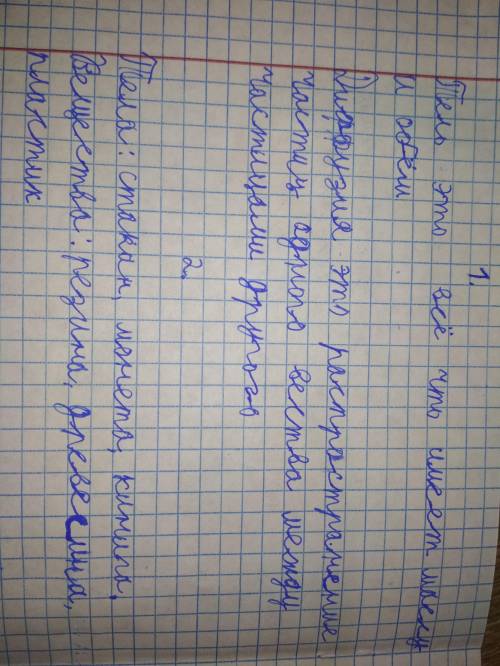 1.
Тело это всё что имеет массу
и объём
Диффузия это распространение
частиц одного вества между
частицами другого
2.
Тела: стакан, монета, книига.
Вещества: резина, древесина,
пластик